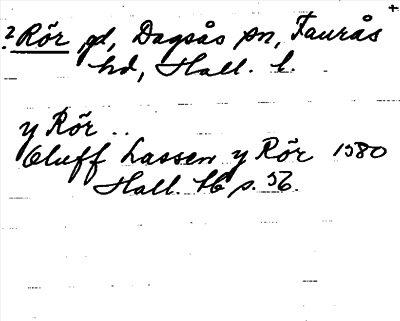 ? Rör gd, Dagsås sn, Faurås
hd, Hall. l.
y Rör ..
Oluff Lassen y Rör 1580
Hall. Hb s. 56.